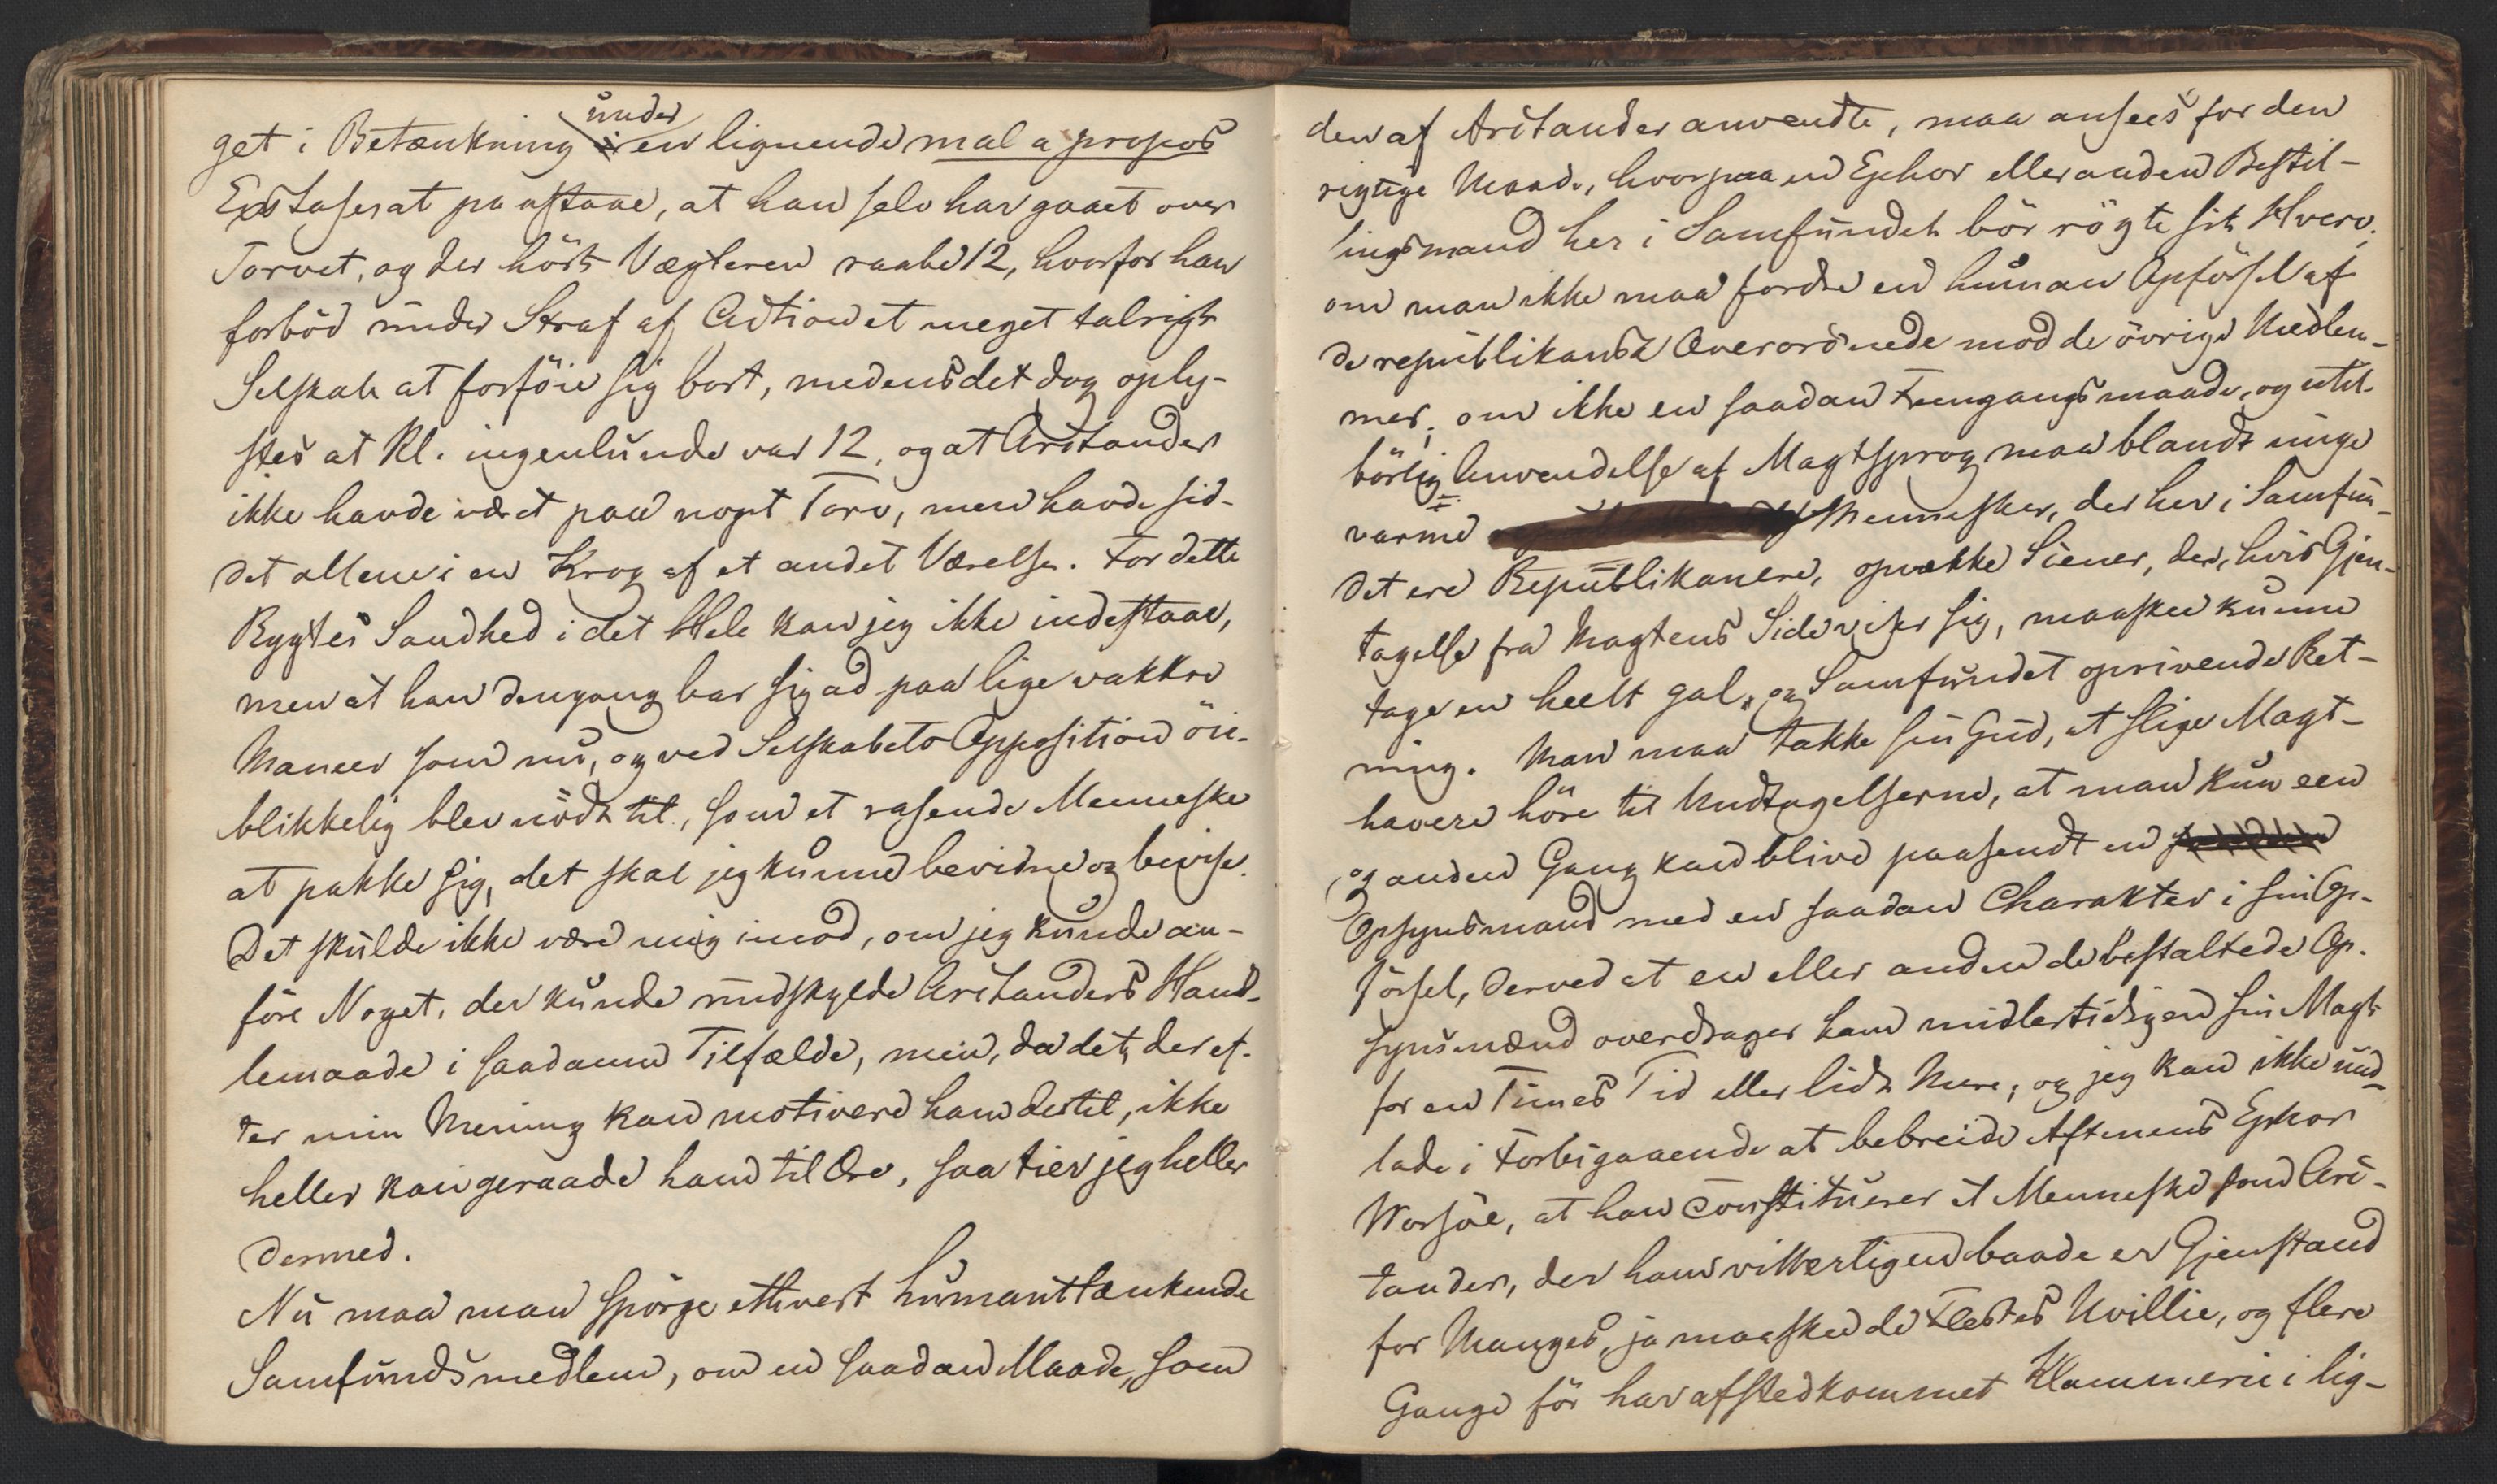 get i Betænkning under en lignende mal a propos
Exstaser at paastaae, at han selv har gaaet over
Torvet, og der hört Vægteren raabe 12, hvorfor han
forböd under Straf af Aution et meget talrigt
Selskab at forföie sig bort, medens det dog oply-
stes at Kl. ingenlunde var 12, og at Aristander
ikke havde været paa noget Torv, men havde sid-
det allene i en Krog af et andet Værelse. For dette
Rygtes Sandhed i det Hele kan jeg ikke indestaae,
men at han dengang bar sig ad paa lige vakkre
Maneer som nu, og ved Selskabets Opposition öie-
blikkelig blev nödt til, som et rasende Menneske
at pakke sig, det skal jeg kunne bevidne og bevise.
Det skulde ikke være mig imod, om jeg kunde an-
före Noget, der kunde undskylde Aristanders Hand-
lemaade i saadanne Tilfælde, men, da det, der ef-
ter min Mening kan motivere ham dertil, ikke
heller kan geraade ham til Ære, saa tier jeg heller
dermed.
Nu maa man spörge ethvert humant tænkende
Samfundsmedlem, om en saadan Maade, som
den af Aristander anvendte, maa ansees for den
rigtige Maade, hvorpaa en Ephor eller anden Bestil-
lingsmand her i Samfundet bör rögte sit Hverv;
om man ikke maa fordre en human Opförsel af
de republikansk Overordnede mod de övrige Medlem-
mer; om ikke en saadan Fremgangsmaade, og util-
börlig Anvendelse af Magtsprog maa blandt unge
varme Mennesker, der her i Samfun-
det ere Republikanere, opvække Scener, der, hvis Gjen-
tagelse fra Magtens Side viser sig, maaskee kunne
tage en heelt gal, og Samfundet oprivende Ret-
ning. Man maa takke sin Gud, at slige Magt-
havere höre til Undtagelserne, at man kun een
og anden Gang kan blive paasendt en
Opsynsmand med en saadan Charakter i sin Op-
försel, derved at en eller anden de bestaltede Op-
synsmænd overdrager ham midlertidigen sin Magt
for en Times Tid eller lidt Mere; og jeg kan ikke und-
lade i Forbigaaende at bebreide Aftenens Ephor
Worsöe, at han constituerer et Menneske som Aris-
tander, der hans vitterligen baade er Gjenstand
for Manges, ja maaskee de Flestes Uvillie, og flere
Gange för har afstedkommet Klammerie i lig-